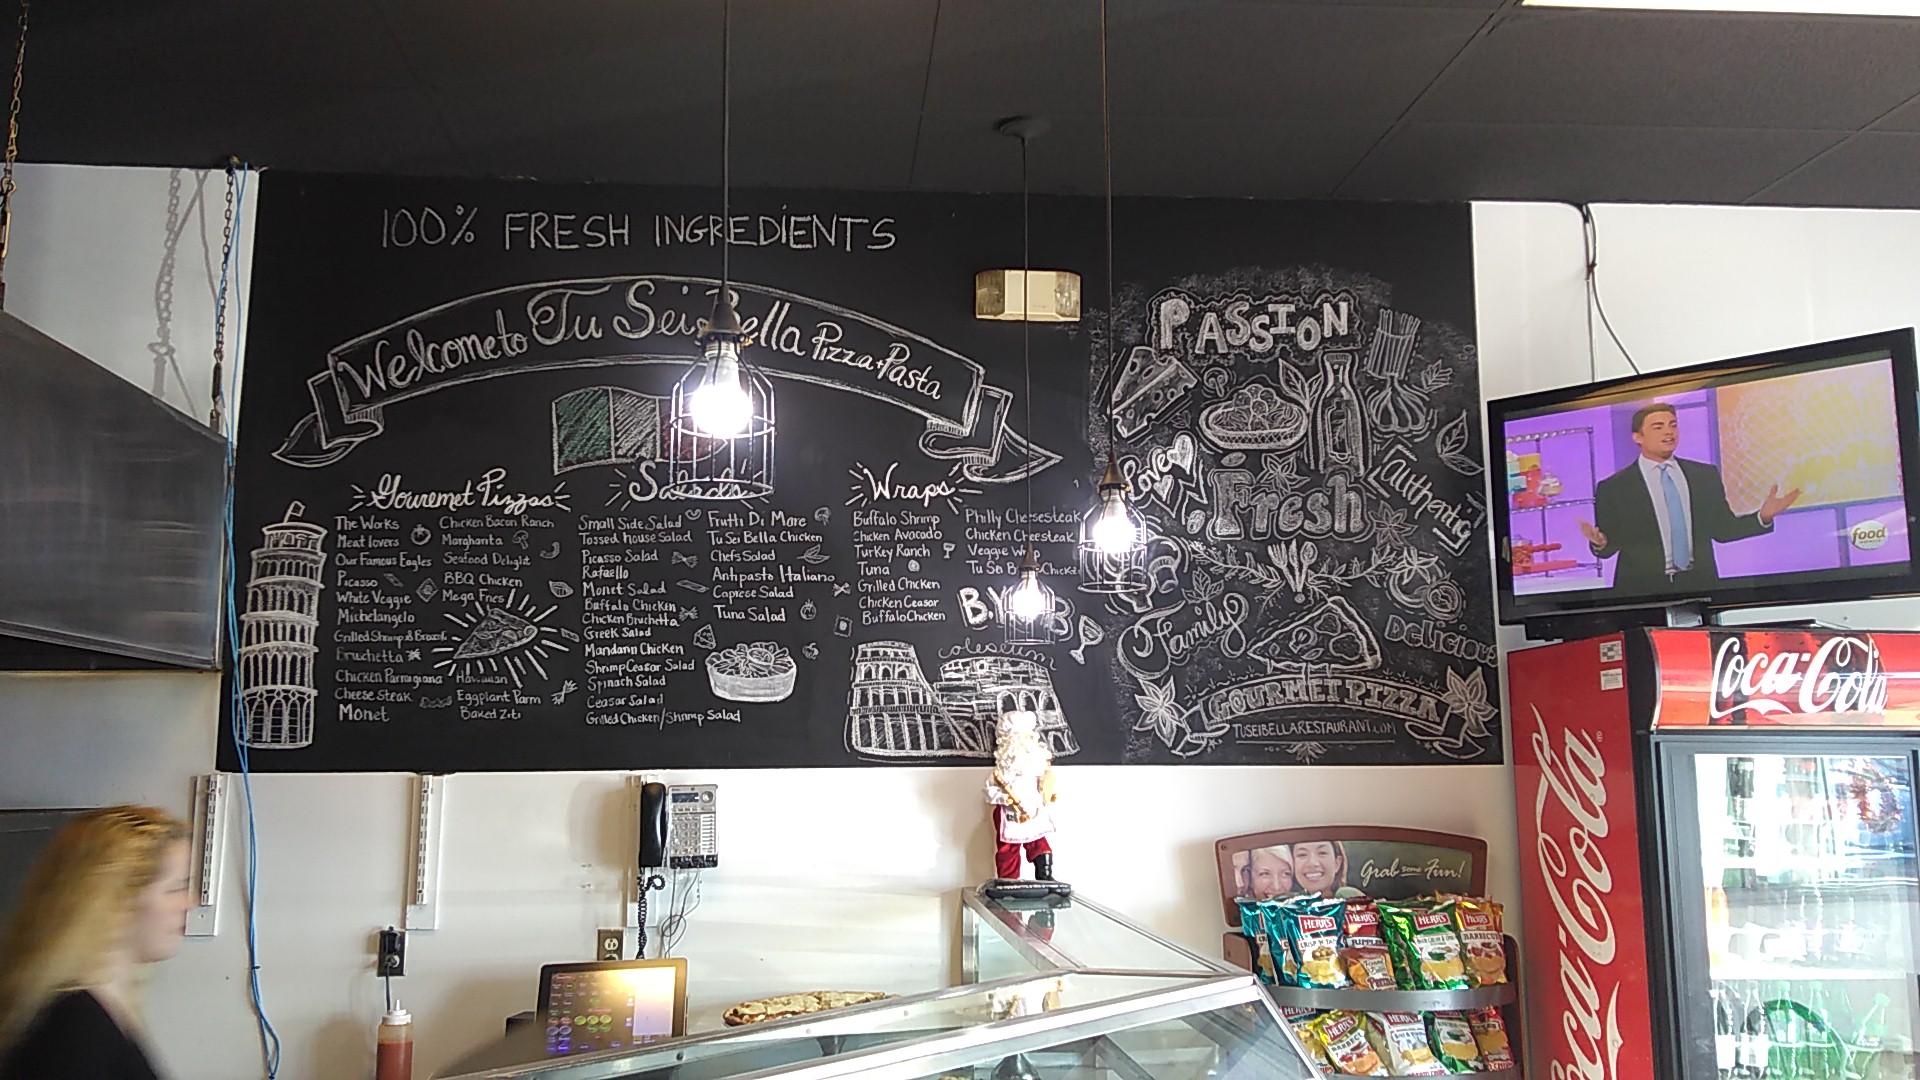 100% FRESH INGREDIENTS
Welcome to Tu Sei Bella Pizza + Pasta
Gouremet Pizzas
The Works
Meat lovers
Our Famous Eagles
Picasso
White Veggie
Michelangelo
Grilled Shrimp & Broccoli
Bruchetta
Chicken Parmigiana
Cheese Steak
Monet
Chicken Bacon Ranch
Margharita
Seafood Delight
BBQ Chicken
Mega Fries
Hawaiian
Eggplant Parm
Baked Ziti
Salads
Small Side Salad
Tossed House Salad
Picasso Salad
Rafaello
Monet Salad
Buffalo Chicken
Chicken Bruchetta
Greek Salad
Mandarin Chicken
Shrimp Ceasar Salad
Spinach Salad
Ceasar Salad
Grilled Chicken/Shrimp Salad
Frutti Di Mare
Tu Sei Bella Chicken
Chefs Salad
Antipasto Italiano
Caprese Salad
Tuna Salad
Wraps
Buffalo Shrimp
Chicken Avocado
Turkey Ranch
Tuna
Grilled Chicken
Chicken Ceasar
Buffalo Chicken
Philly Cheesesteak
Chicken Cheesteak
Veggie Wrap
Tu Sei
coleseum
PASSION
Love
Fresh
Authentic
Family
Delicious
GOURMET PIZZA
TUSEIBELLARESTAURANT.COM
food
Coca-Cola
Coca-Cola
Grab Some Fun!
HERR'S
CRISP 'N TASTY
HERR'S
RIPPLES
HERR'S
HERR'S
BARBECUE
HERR'S
HERR'S
BARBECUE
HERR'S
HERR'S